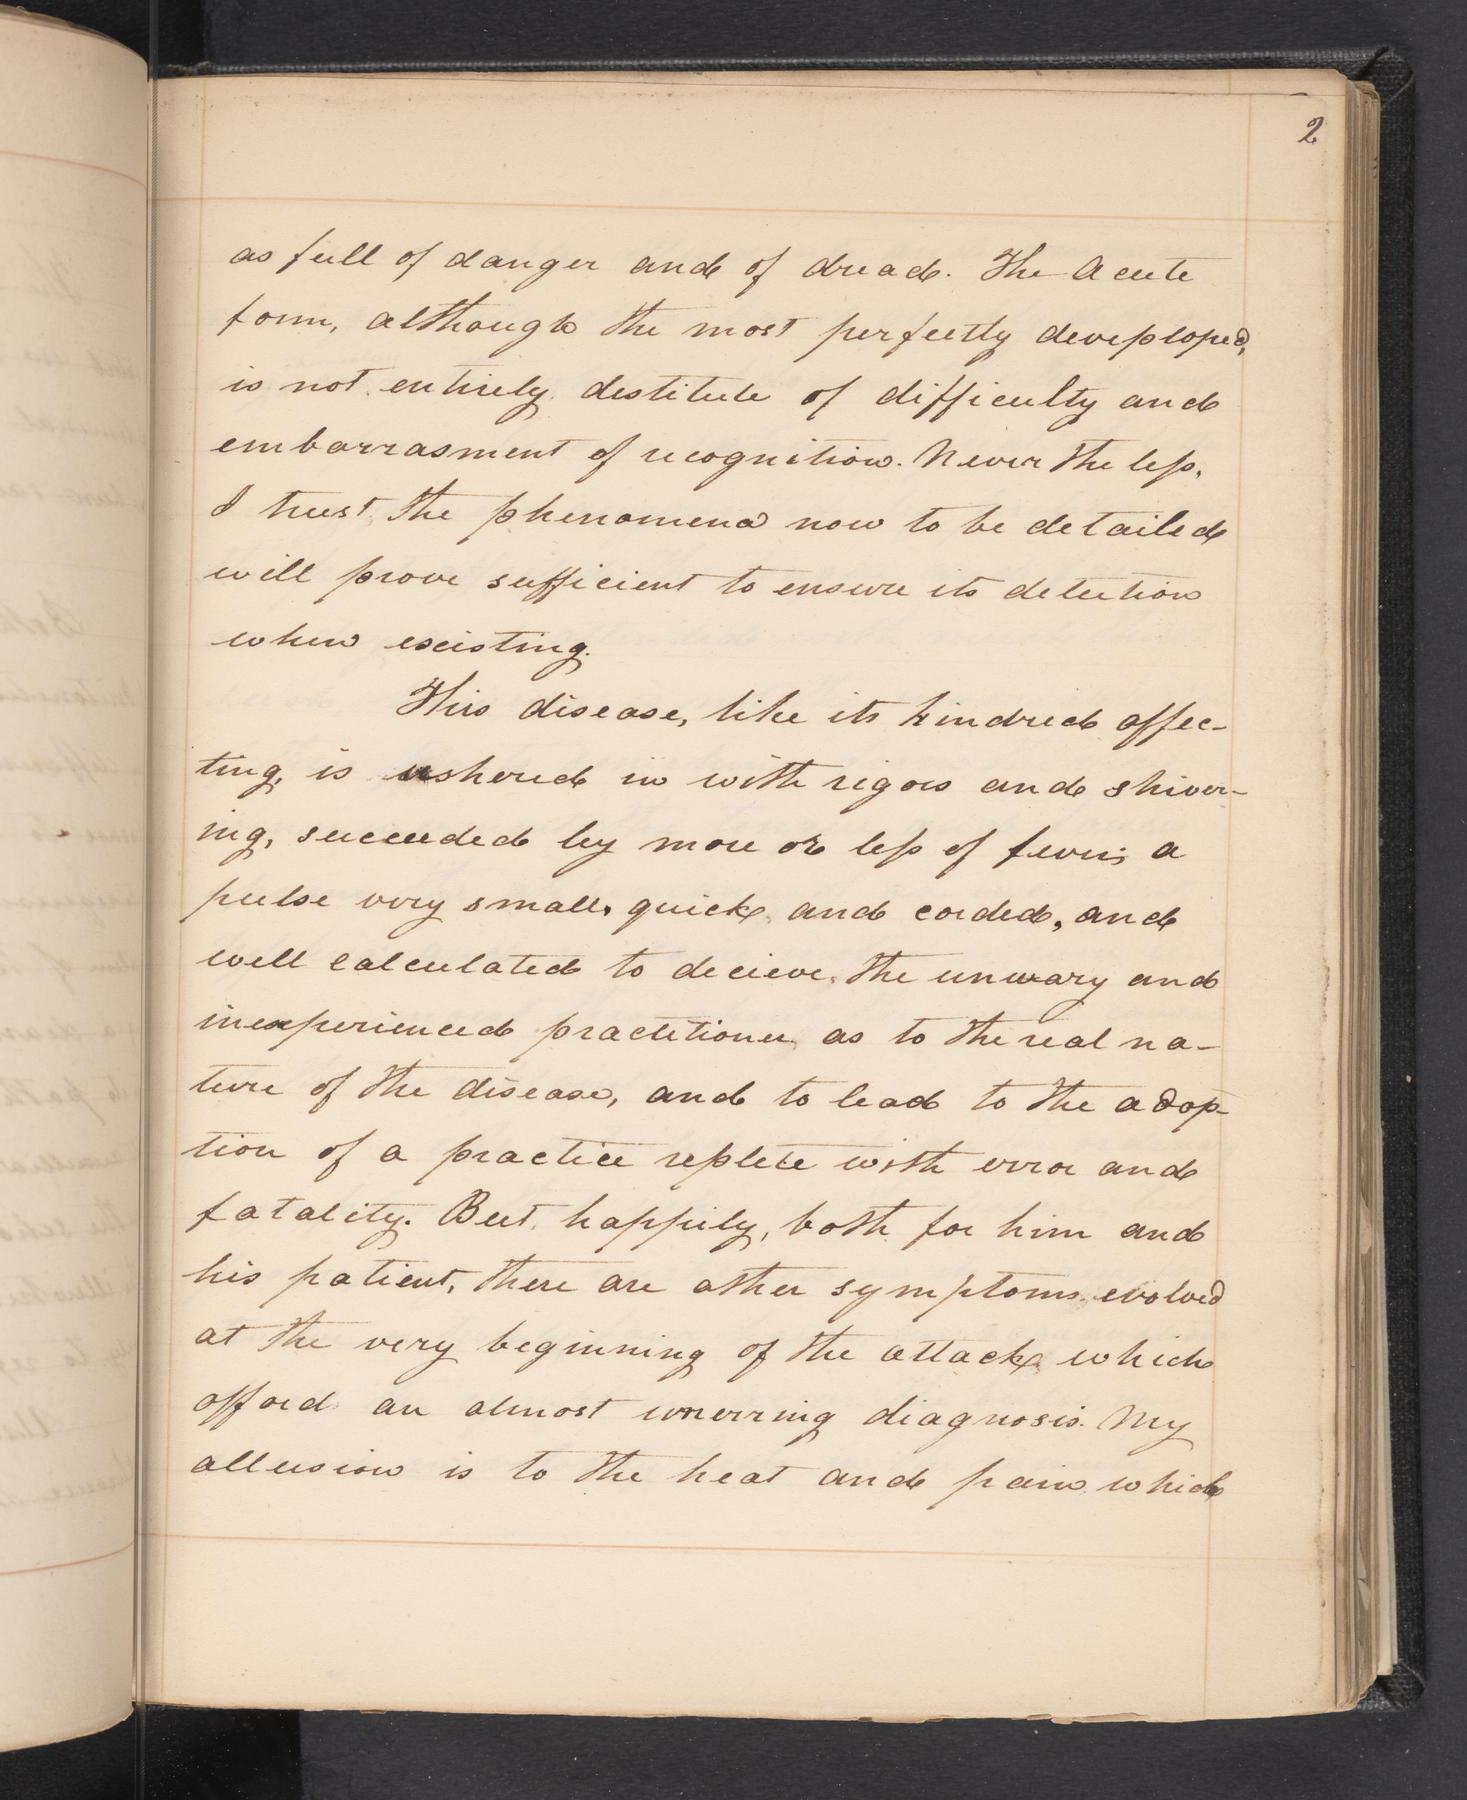 2
as full of danger and of dread. The Acute
form, although the most perfectly developed,
is not entirely destitute of difficulty and
embarrasment of recognition. Never the less,
I trust, the phenomena now to be detailed
will prove sufficient to ensure its detection
when existing.
This disease, like its kindred affec-
ting, is ushered in with rigors and shiver-
ing, succeeded by more or less of fever; a
pulse very small, quick, and corded, and
well calculated to decieve, the unwary and
inexperienced practitioner, as to the real na-
ture of the disease, and to lead to the adop-
tion of a practice replete with error and
fatality. But, happily, both for him and
his patient, there are other symptoms evolved
at the very beginning of the attack, which
afford an almost unerring diagnosis. My
allusion is to the heat and pain which